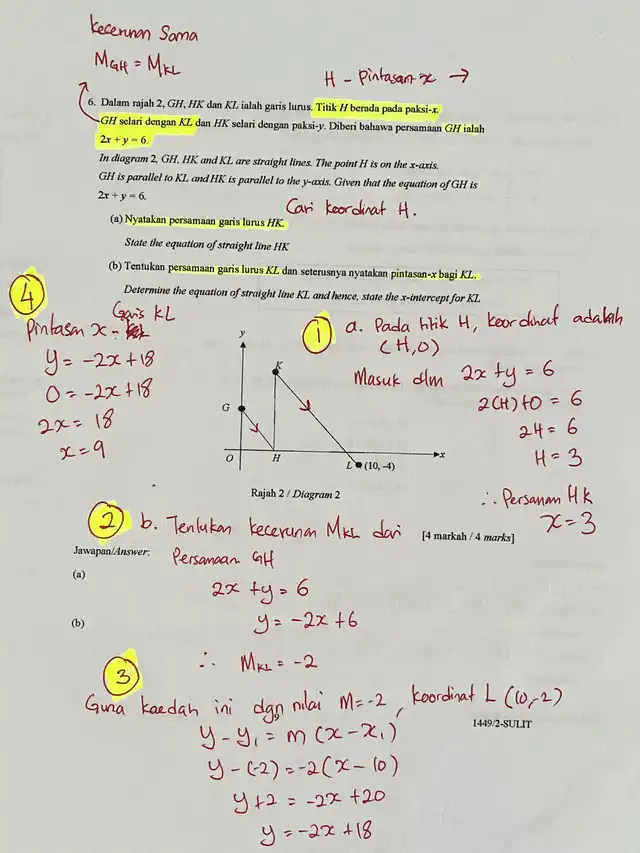 kecerunan Sama
M_GH = M_KL
H - Pintasan-x →
6. Dalam rajah 2, GH, HK dan KL ialah garis lurus. Titik H berada pada paksi-x.
GH selari dengan KL dan HK selari dengan paksi-y. Diberi bahawa persamaan GH ialah
2x + y = 6.
In diagram 2, GH, HK and KL are straight lines. The point H is on the x-axis.
GH is parallel to KL and HK is parallel to the y-axis. Given that the equation of GH is
2x + y = 6.
Cari koordinat H.
(a) Nyatakan persamaan garis lurus HK.
State the equation of straight line HK
(b) Tentukan persamaan garis lurus KL dan seterusnya nyatakan pintasan-x bagi KL.
Determine the equation of straight line KL and hence, state the x-intercept for KL
4
Garis KL
Pintasan x -
y = -2x + 18
0 = -2x + 18
2x = 18
x = 9
1 a. Pada titik H, koordinat adalah
(H,0)
Masuk dlm 2x + y = 6
2(H) + 0 = 6
2H = 6
H = 3
∴ Persamaan HK
x = 3
y
K
G
O
H
L
(10, -4)
x
Rajah 2 / Diagram 2
2 b. Tentukan kecerunan M_KL dari
[4 markah / 4 marks]
Jawapan/Answer:
Persamaan GH
(a)
2x + y = 6
(b)
y = -2x + 6
∴ M_KL = -2
3
Guna kaedah ini dgn nilai M = -2, koordinat L (10,-2)
9
1449/2-SULIT
y - y₁ = m (x - x₁)
y - (-2) = -2(x - 10)
y + 2 = -2x + 20
y = -2x + 18